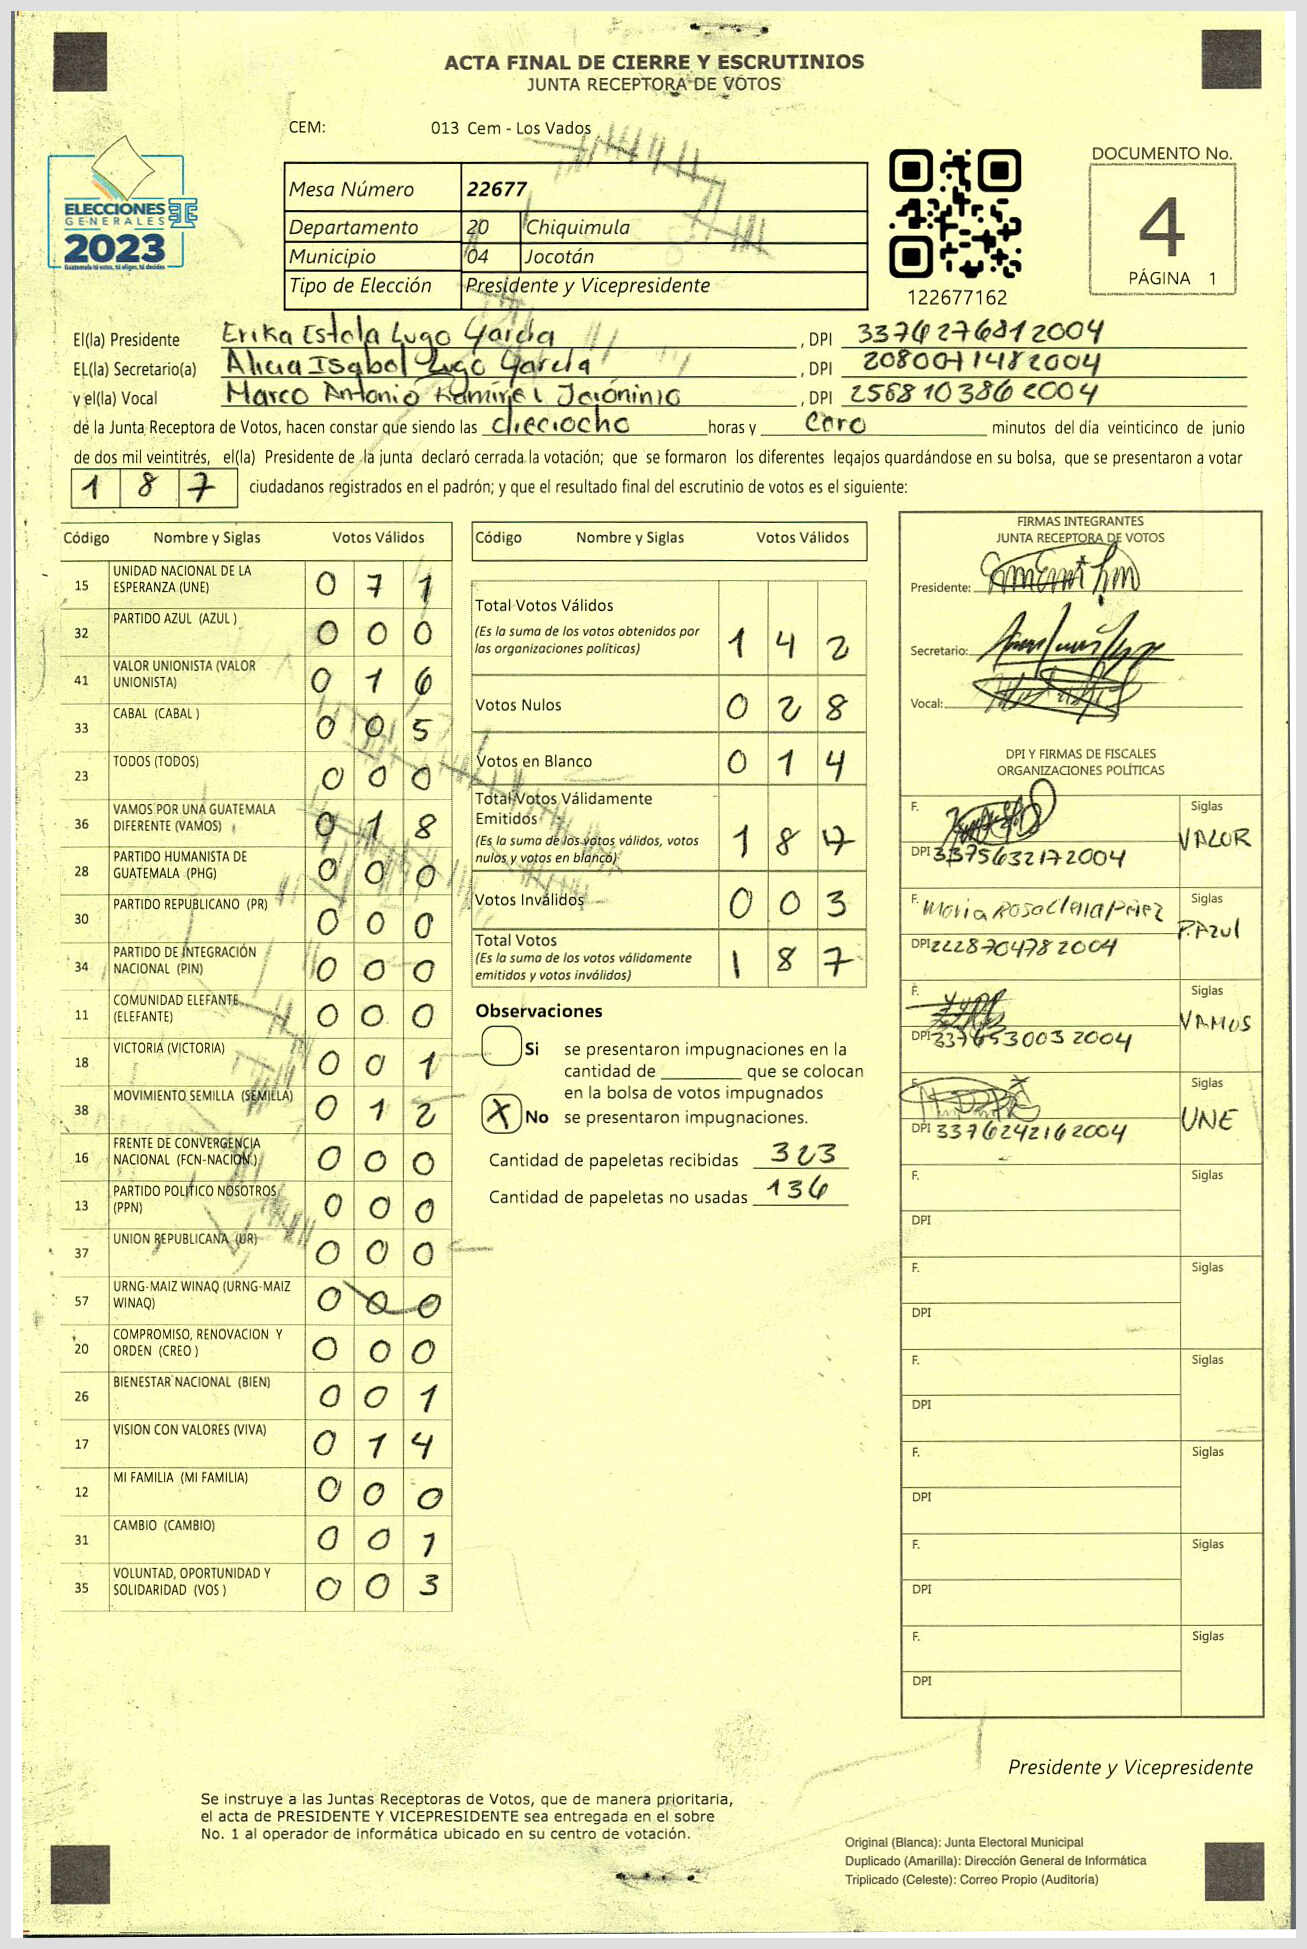 ACTA FINAL DE CIERRE Y ESCRUTINIOS
JUNTA RECEPTORA DE VOTOS
CEM: 013 Cem - Los Vados
ELECCIONES
GENERALES
2023
Guatemala tú votas, tú eliges, tú decides
Mesa Número 22677
Departamento 20 Chiquimula
Municipio 04 Jocotán
Tipo de Elección Presidente y Vicepresidente
122677162
DOCUMENTO No.
4
PÁGINA 1
El(la) Presidente Erika Estela Lugo García, DPI 3376276812004
EL(la) Secretario(a) Alicia Isabel Lugo García, DPI 2080071482004
y el(la) Vocal Marco Antonio Ramírez Jerónimo, DPI 2568103862004
de la Junta Receptora de Votos, hacen constar que siendo las dieciocho horas y cero minutos del día veinticinco de junio
de dos mil veintitrés, el(la) Presidente de la junta declaró cerrada la votación; que se formaron los diferentes legajos quardándose en su bolsa, que se presentaron a votar
187 ciudadanos registrados en el padrón; y que el resultado final del escrutinio de votos es el siguiente:
Código Nombre y Siglas Votos Válidos
15 UNIDAD NACIONAL DE LA ESPERANZA (UNE) 071
32 PARTIDO AZUL (AZUL ) 000
41 VALOR UNIONISTA (VALOR UNIONISTA) 016
33 CABAL (CABAL ) 005
23 TODOS (TODOS) 000
36 VAMOS POR UNA GUATEMALA DIFERENTE (VAMOS) 018
28 PARTIDO HUMANISTA DE GUATEMALA (PHG) 000
30 PARTIDO REPUBLICANO (PR) 000
34 PARTIDO DE INTEGRACIÓN NACIONAL (PIN) 000
11 COMUNIDAD ELEFANTE (ELEFANTE) 000
18 VICTORIA (VICTORIA) 001
38 MOVIMIENTO SEMILLA (SEMILLA) 012
16 FRENTE DE CONVERGENCIA NACIONAL (FCN-NACION.) 000
13 PARTIDO POLITICO NOSOTROS (PPN) 000
37 UNION REPUBLICANA (UR) 000
57 URNG-MAIZ WINAQ (URNG-MAIZ WINAQ) 000
20 COMPROMISO, RENOVACION Y ORDEN (CREO ) 000
26 BIENESTAR NACIONAL (BIEN) 001
17 VISION CON VALORES (VIVA) 014
12 MI FAMILIA (MI FAMILIA) 000
31 CAMBIO (CAMBIO) 001
35 VOLUNTAD, OPORTUNIDAD Y SOLIDARIDAD (VOS ) 003
Código Nombre y Siglas Votos Válidos
Total Votos Válidos 142
(Es la suma de los votos obtenidos por
las organizaciones políticas)
Votos Nulos 028
Votos en Blanco 014
Total Votos Válidamente
Emitidos 187
(Es la suma de los votos válidos, votos
nulos y votos en blanco)
Votos Inválidos 003
Total Votos 187
(Es la suma de los votos válidamente
emitidos y votos inválidos)
Observaciones
Si se presentaron impugnaciones en la
cantidad de ________ que se colocan
en la bolsa de votos impugnados
X No se presentaron impugnaciones.
Cantidad de papeletas recibidas 323
Cantidad de papeletas no usadas 136
FIRMAS INTEGRANTES
JUNTA RECEPTORA DE VOTOS
Presidente:
Secretario:
Vocal:
DPI Y FIRMAS DE FISCALES
ORGANIZACIONES POLÍTICAS
F. Siglas
DPI 3375632172004 VALOR
F. Maria Rosa Elena Pérez Siglas
DPI 2228704782004 P.Azul
F. Siglas
DPI 3376530032004 VAMOS
F. Siglas
DPI 3376242162004 UNE
F. Siglas
DPI
F. Siglas
DPI
F. Siglas
DPI
F. Siglas
DPI
F. Siglas
DPI
F. Siglas
DPI
Presidente y Vicepresidente
Se instruye a las Juntas Receptoras de Votos, que de manera prioritaria,
el acta de PRESIDENTE Y VICEPRESIDENTE sea entregada en el sobre
No. 1 al operador de informática ubicado en su centro de votación.
Original (Blanca): Junta Electoral Municipal
Duplicado (Amarilla): Dirección General de Informática
Triplicado (Celeste): Correo Propio (Auditoría)